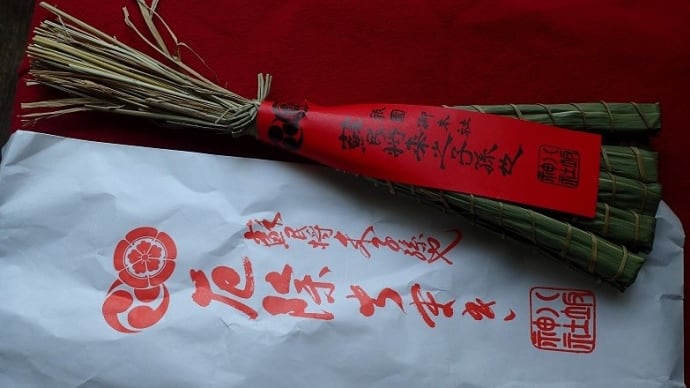 祇園御本社
蘇民将来之子孫也
八坂神社
蘇民将来子孫也
厄除ちまき
八坂神社